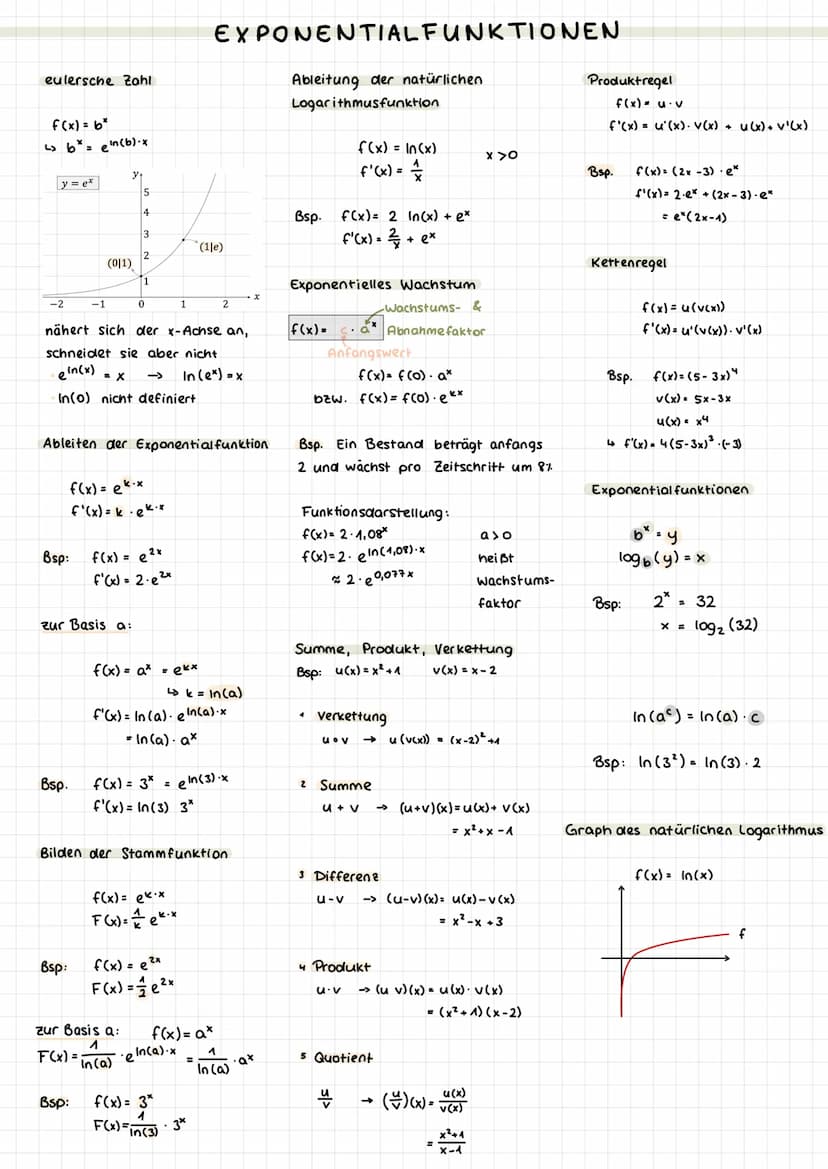 EXPONENTIALFUNKTIONEN
eulersche Zahl
f(x) = b^x
↳ b^x = e^{ln(b)·x}
y = e^x
y
5
4
3
2
1
(1|e)
(0|1)
-2 -1 0 1 2 x
nähert sich der x-Achse an,
schneidet sie aber nicht
· e^{ln(x)} = x → ln(e^x) = x
· ln(0) nicht definiert
Ableiten der Exponentialfunktion
f(x) = e^{k·x}
f'(x) = k · e^{k·x}
Bsp: f(x) = e^{2x}
f'(x) = 2·e^{2x}
zur Basis a:
f(x) = a^x = e^{kx}
↳ k = ln(a)
f'(x) = ln(a) · e^{ln(a)·x}
= ln(a) · a^x
Bsp. f(x) = 3^x = e^{ln(3)·x}
f'(x) = ln(3) 3^x
Bilden der Stammfunktion
f(x) = e^{k·x}
F(x) = 1/k e^{k·x}
Bsp: f(x) = e^{2x}
F(x) = 1/2 e^{2x}
zur Basis a: f(x) = a^x
F(x) = 1/ln(a) · e^{ln(a)·x} = 1/ln(a) · a^x
Bsp: f(x) = 3^x
F(x) = 1/ln(3) · 3^x
Ableitung der natürlichen
Logarithmusfunktion
f(x) = ln(x)
x > 0
f'(x) = 1/x
Bsp. f(x) = 2 ln(x) + e^x
f'(x) = 2/x + e^x
Exponentielles Wachstum
Wachstums- &
f(x) = c · a^x Abnahmefaktor
Anfangswert
f(x) = f(0) · a^x
bzw. f(x) = f(0) · e^{kx}
Bsp. Ein Bestand beträgt anfangs
2 und wächst pro Zeitschritt um 8%
Funktionsdarstellung:
f(x) = 2 · 1,08^x a>0
f(x) = 2 · e^{ln(1,08)·x} heißt
≈ 2 · e^{0,077x} Wachstums-
faktor
Summe, Produkt, Verkettung
Bsp: u(x) = x²+1 v(x) = x-2
1 Verkettung
u∘v → u(v(x)) = (x-2)²+1
2 Summe
u + v → (u+v)(x) = u(x) + v(x)
= x²+x-1
3 Differenz
u-v → (u-v)(x) = u(x)-v(x)
= x²-x+3
4 Produkt
u·v → (u v)(x) = u(x) · v(x)
= (x²+1)(x-2)
5 Quotient
u/v → (u/v)(x) = u(x)/v(x)
= x²+1/x-1
Produktregel
f(x) = u · v
f'(x) = u'(x) · v(x) + u(x) + v'(x)
Bsp. f(x) = (2x -3) · e^x
f'(x) = 2·e^x + (2x-3)·e^x
= e^x(2x-1)
Kettenregel
f(x) = u(v(x))
f'(x) = u'(v(x)) · v'(x)
Bsp. f(x) = (5-3x)^4
v(x) = 5x-3x
u(x) = x^4
↳ f'(x) = 4(5-3x)³·(-3)
Exponentialfunktionen
b^x = y
log_b(y) = x
Bsp: 2^x = 32
x = log_2(32)
ln(a^c) = ln(a) · c
Bsp: ln(3²) = ln(3) · 2
Graph des natürlichen Logarithmus
f(x) = ln(x)
f